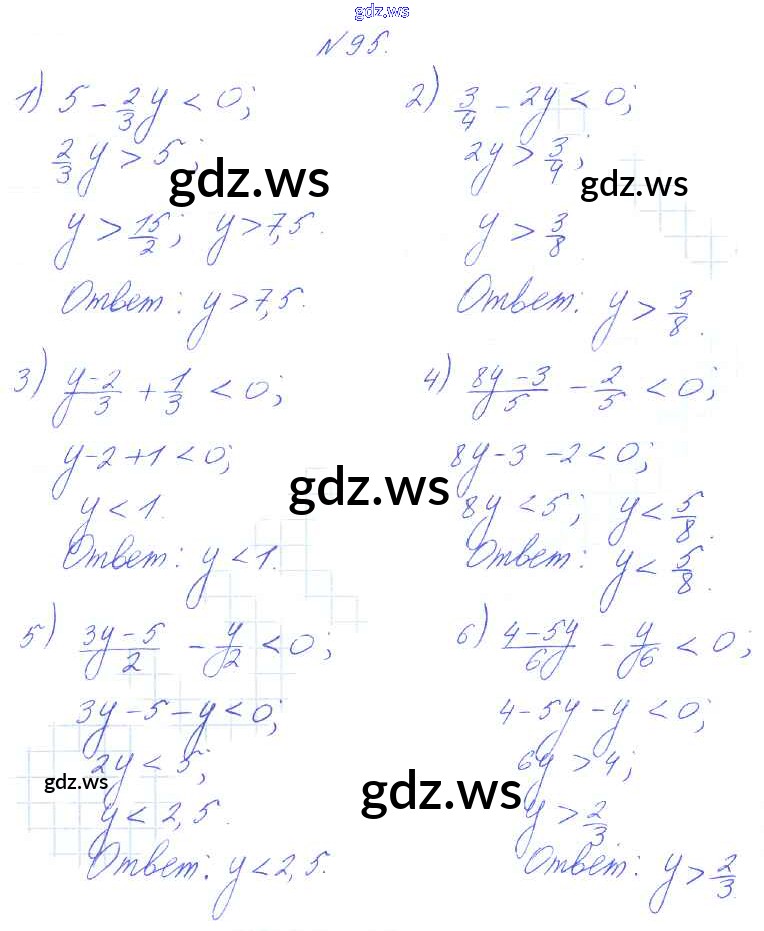 gdz.ws
№95.
1) 5 - 2/3 y < 0;
2/3 y > 5;
y > 15/2; y > 7,5.
Ответ: y > 7,5.
2) 3/4 - 2y < 0;
2y > 3/4;
y > 3/8
Ответ: y > 3/8.
gdz.ws
gdz.ws
3) y-2/3 + 1/3 < 0;
y-2+1 < 0;
y < 1.
Ответ: y < 1.
4) 8y-3/5 - 2/5 < 0;
8y-3-2 < 0;
8y < 5; y < 5/8.
Ответ: y < 5/8.
gdz.ws
5) 3y-5/2 - y/2 < 0;
3y-5-y < 0;
2y < 5;
y < 2,5.
Ответ: y < 2,5.
6) 4-5y/6 - y/6 < 0;
4-5y-y < 0;
6y > 4;
y > 2/3
Ответ: y > 2/3.
gdz.ws
gdz.ws